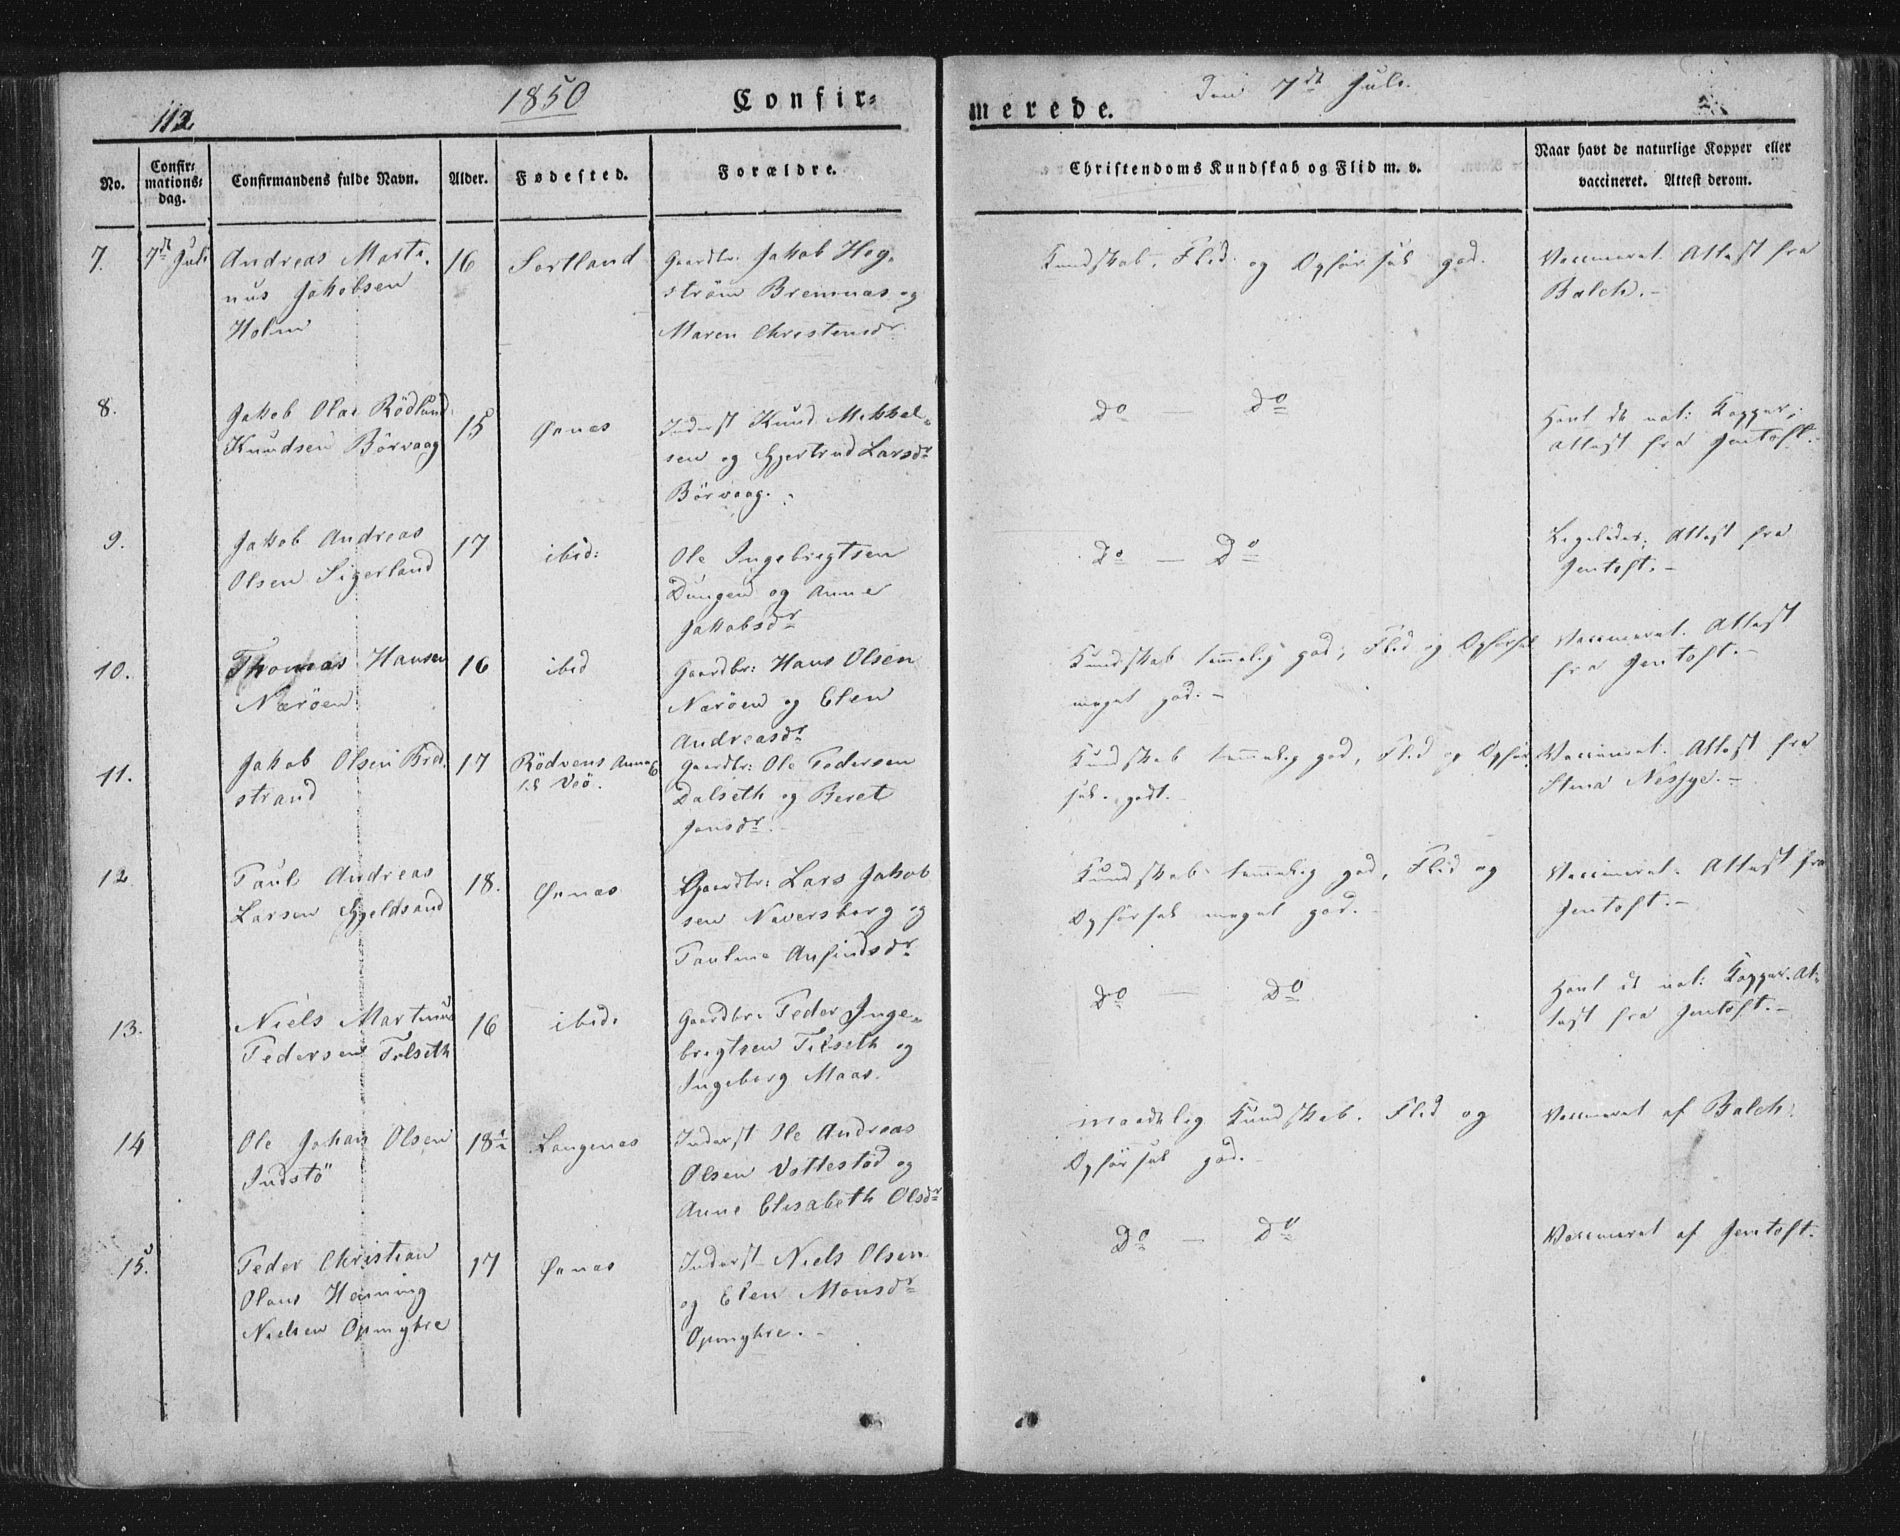 112
1850
Confir-
No.
Confir-
mations-
dag.
Confirmandens fulde Navn.
Alder.
Fødested.
Forældre.
7.
7de Juli
Andreas Marti-
nus Jakobsen
Holm
16
Sortland
Gaardbr: Jakob Heg-
ström Bremnæs og
Maren Christensdr
8.
Jakob Olai Rödland
Knudsen Börvaag
15
Øxnæs
Inderst Knud Mikkel-
sen og Gjertrud Larsdr
Börvaag.
9.
Jakob Andreas
Olsen Sigerland
17
ibid:
Ole Ingebrigtsen
Dungen og Anne
Jakobsdr
10.
Thomas Hansen
Nærøen
16
ibid
Gaardbr: Hans Olsen
Nærøen og Elen
Andreasdr
11.
Jakob Olsen Bred-
strand
17
Rödvens Annex
til Veö.
Gaardbr: Ole Pedersen
Dalseth og Beret
Jonsdr
12
Paul Andreas
Larsen Gjeldsand
18.
Øxnæs
Gaardbr: Lars Jakob
sen Naversberg og
Pauline Anfindsdr
13.
Niels Martinus
Pedersen Tilseth
16
ibid:
Gaardbr: Peder Inge-
brigtsen Tilseth og
Ingeborg Maas.
14
Ole Johan Olsen
Indstö
18½
Langenæs
Inderst Ole Andreas
Olsen Vottestad og
Anne Elisabeth Olsdr
15.
Peder Christian
Olaus Henning
Nielsen Opmyhre
17
Øxnæs
Inderst Niels Olsen
og Elen Monsdr
Opmyhre.
Den 7de Juli.
merede.
Christendoms Kundskab og Flid m. v.
Naar havt de naturlige Kopper eller
vaccineret. Attest derom.
Kundskab, Flid og Opførsel god.
Vaccineret. Attest fra
Balch.
Do — Do
Havt de nat: Kopper,
Attest fra Jentoft.
Do — Do
Ligeledes; Attest fra
Jentoft.
Kundskab temmelig god, Flid og Opførsel
meget god.
Vaccineret. Attest
fra Jentoft.
Kundskab temmelig god, Flid og Opfør
sel godt.
Vaccineret. Attest fra
Stena Nessje.
Kundskab temmelig god, Flid og
Opførsel meget god.
Vaccineret. Attest fra
Jentoft.
Do — Do
Havt de nat: Kopper. At-
test fra Jentoft.
maadelig Kundskab. Flid og
Opførsel god.
Vaccineret af Balch.
Do — Do
Vaccineret af Jentoft.